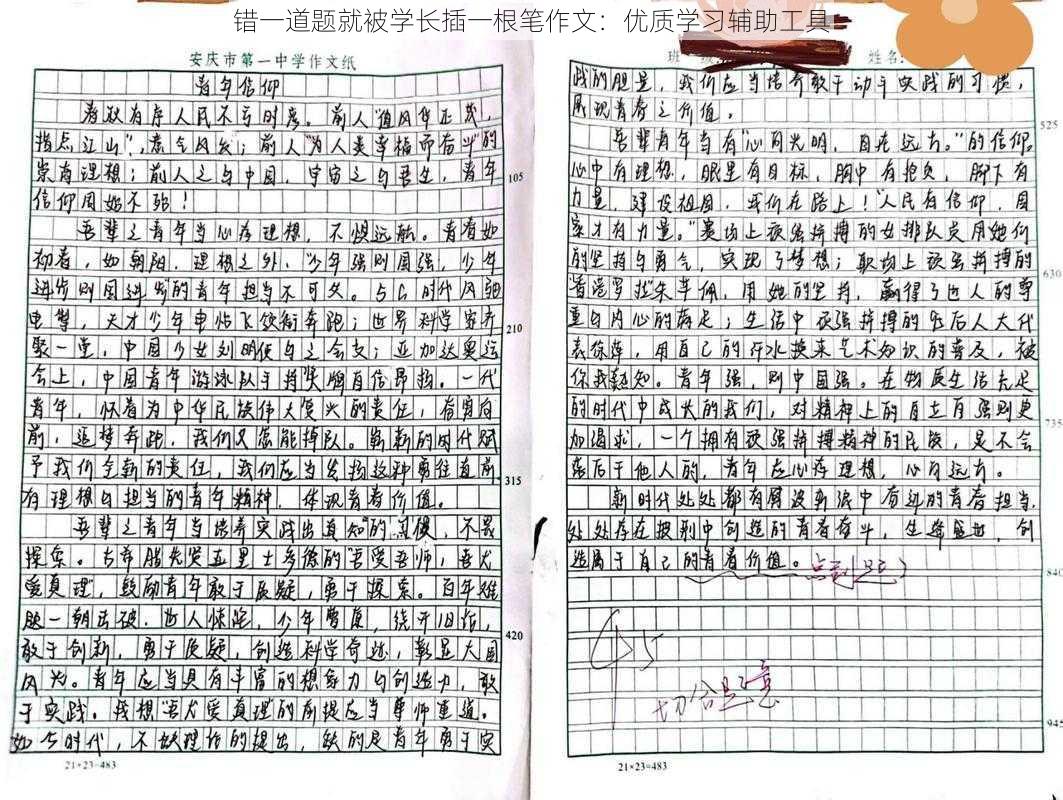 错一道题就被学长插一根笔作文：优质学习辅助工具
安庆市第一中学作文纸
姓名：
青年信仰
春秋有序人民不亏时彦。前人"道风华正茂，
指点江山"，意气风发；前人"为人类幸福而奋斗"的
崇高理想；前人之与中国，宇宙之与吾生，青年
105
信仰固始不弱！
吾辈之青年当心存理想，不惧远航。青春如
初春，如朝阳，理想之外，少年强则国强，少年
进步则国进步的青年担当不可失。5G时代风驰
电掣，天才少年申怡飞饮衔奔跑；世界科学家齐
210
聚一堂，中国少女刘明侦与之会友；亚加达奥运
会上，中国青年游泳队手持奖牌自信昂扬。一代
青年，怀着为中华民族伟大复兴的责任，奋勇向
前，追梦奔跑，我们又怎能掉队。崭新的时代赋
予我们全新的责任，我们应当发扬这种勇往直前
315
有理想与担当的青年精神，体现青春价值。
吾辈之青年当培养实践出真知的习惯，不畏
探索。古希腊先贤亚里士多德的"吾爱吾师，吾尤
爱真理"，鼓励青年敢于质疑，勇于探索。百年难
题一朝击破，世人惊叹，少年曹原，绕开旧话，
420
敢于创新，勇于质疑，创造科学奇迹，彰显大国
风范。青年应当具有丰富的想象力与创造力，敢
于实践。我想"吾尤爱真理"的前提应当尊师重道。
如今时代，不缺理论的提出，缺的是青年勇于实
21×23=483
践的胆量，我们应当培养敢于动手实践的习惯，
展现青春之价值。
525
吾辈青年当有"心向光明，目在远方。"的信仰。
心中有理想，眼里有目标，胸中有抱负，脚下有
力量，建设祖国，我们在路上！"人民有信仰，国
家才有力量。"赛场上顽强拼搏的女排队员用她们
的坚持与勇气，实现了梦想；职场上顽强拼搏的
630
"香港罗拉"朱辛佩，用她的坚持，赢得了世人的尊
重与内心的满足；生活中顽强拼搏的经后人大代
表徐萍，用自己的汗水换来艺术知识的普及，被
你我熟知。青年强，则中国强。在物质生活充足
的时代中成长的我们，对精神上的自立自强则更
735
加渴求，一个拥有顽强拼搏精神的民族，是不会
落后于他人的，青年应心存理想，心向远方。
新时代处处都有风波新浪中奋进的青春担当，
处处存在披荆中创造的青春奋斗，生逢盛世，创
造属于自己的青春价值。点题
840
45
切合题意
945
21×23=483